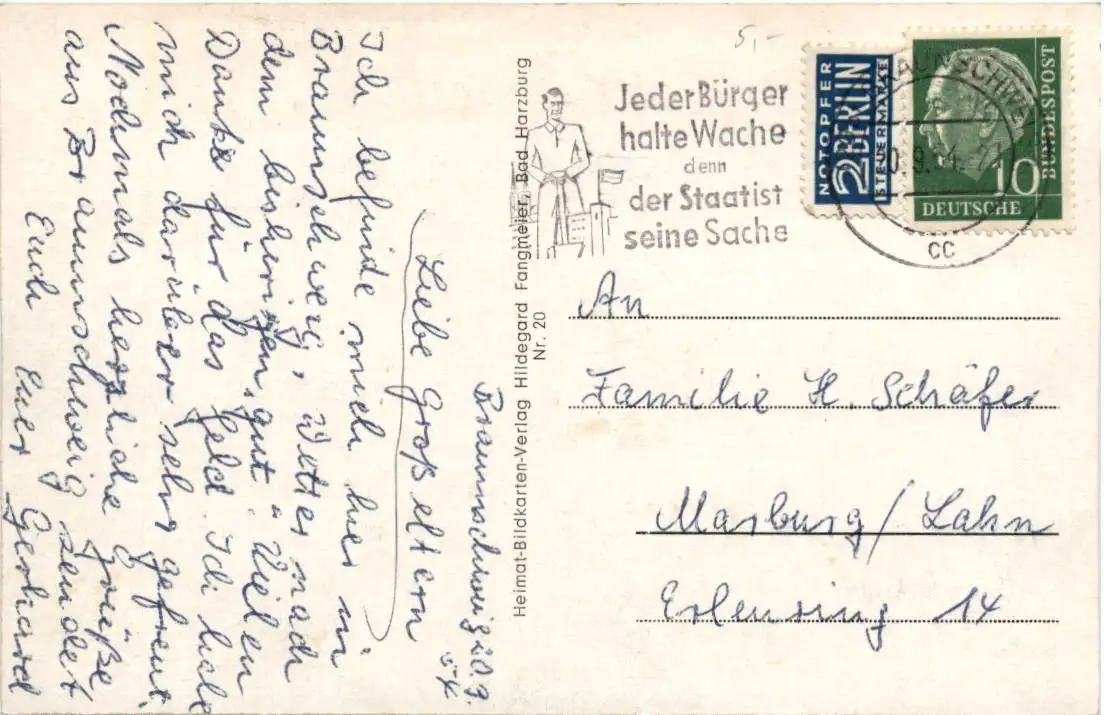 Braunschweig 20.9.
54
Liebe Großeltern
Ich befinde mich hier in
Braunschweig, Wetter nach
dem bisherigen, gut. Vielen
Dank für das Geld. Ich habe
mich darüber sehr gefreut.
Nochmals herzliche Grüße
aus Braunschweig sendet
Euch Euer Gerhard
Heimat-Bildkarten-Verlag Hildegard Fangmeier, Bad Harzburg
Nr. 20
5,-
Jeder Bürger
halte Wache
denn
der Staat ist
seine Sache
NOTOPFER
2 BERLIN
STEUERMARKE
BRAUNSCHWEIG
20.9.54
cc
10
DEUTSCHE
BUNDESPOST
An
Familie H. Schäfer
Marburg/Lahn
Erlenring 14